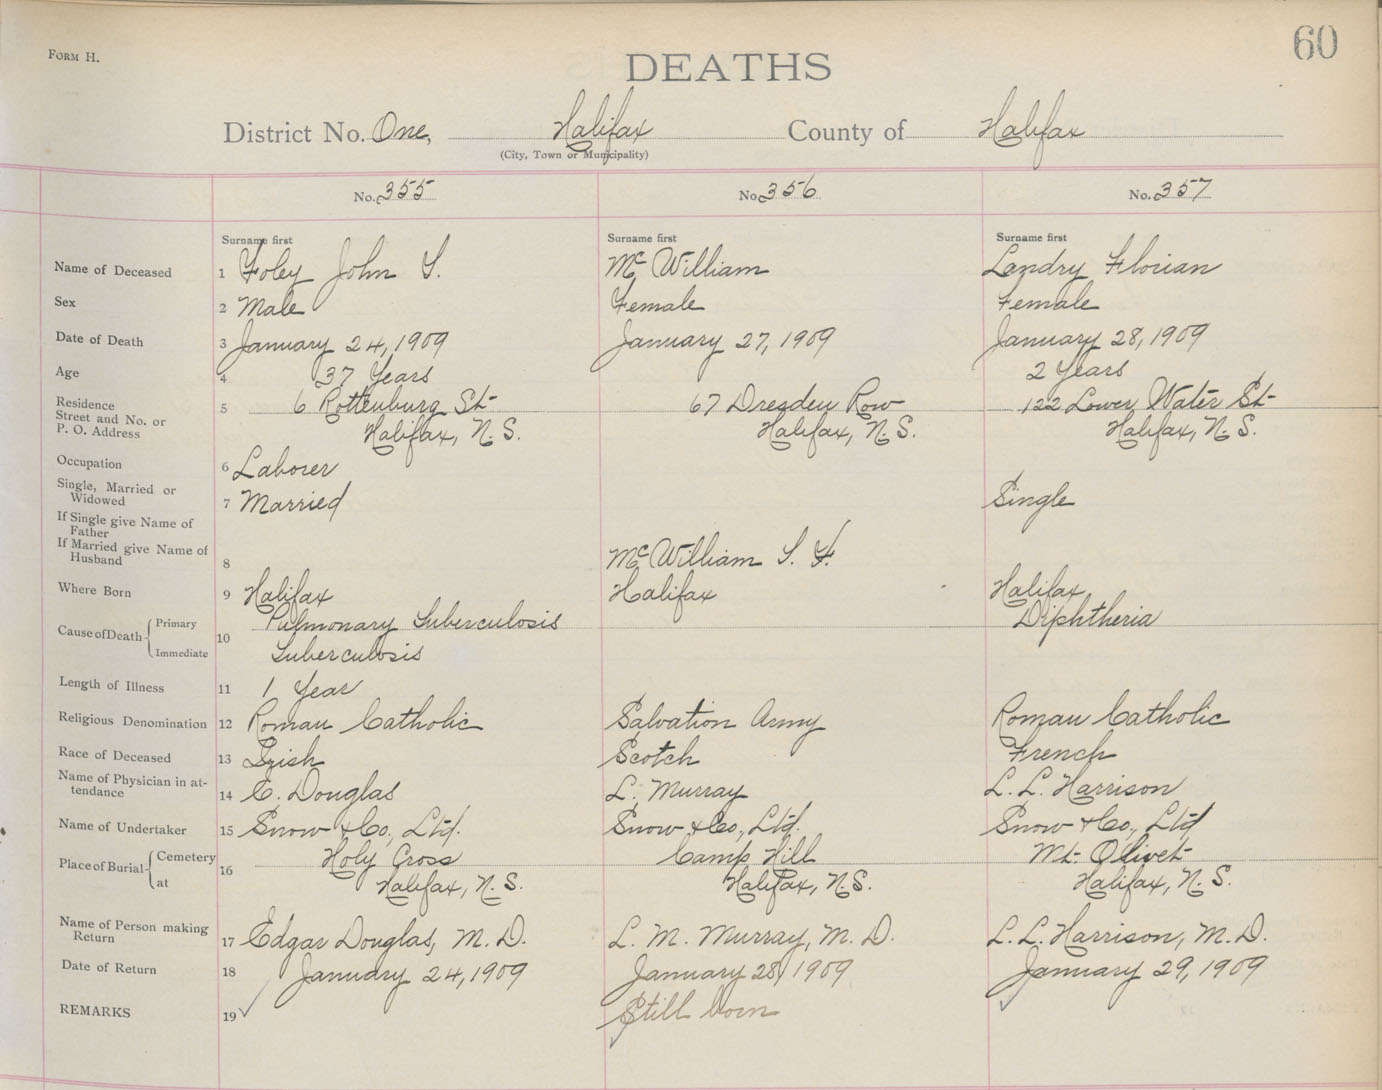 60
FORM H.
DEATHS
District No. One, Halifax County of Halifax
(City, Town or Municipality)
No. 355 No. 356 No. 357
Surname first Surname first Surname first
Name of Deceased 1 Foley John S. McWilliam Landry Florian
Sex 2 Male Female Female
Date of Death 3 January 24, 1909 January 27, 1909 January 28, 1909
Age 4 37 Years 2 Years
Residence
Street and No. or 5 6 Rottenburg St- 67 Dresden Row 122 Lower Water St-
P. O. Address Halifax, N.S. Halifax, N.S. Halifax, N.S.
Occupation 6 Laborer
Single, Married or
Widowed 7 Married Single
If Single give Name of
Father
If Married give Name of
Husband 8 McWilliam S. F.
Where Born 9 Halifax Halifax Halifax
Cause of Death Primary 10 Pulmonary Tuberculosis Diphtheria
Immediate Tuberculosis
Length of Illness 11 1 Year
Religious Denomination 12 Roman Catholic Salvation Army Roman Catholic
Race of Deceased 13 Irish Scotch French
Name of Physician in at-
tendance 14 E. Douglas L. Murray L. L. Harrison
Name of Undertaker 15 Snow & Co., Ltd. Snow & Co., Ltd. Snow & Co., Ltd
Place of Burial Cemetery 16 Holy Cross Camp Hill Mt- Olivet-
at Halifax, N.S. Halifax, N.S. Halifax, N.S.
Name of Person making
Return 17 Edgar Douglas, M.D. L. M. Murray, M.D. L. L. Harrison, M.D.
Date of Return 18 January 24, 1909 January 28, 1909 January 29, 1909
REMARKS 19 Still born